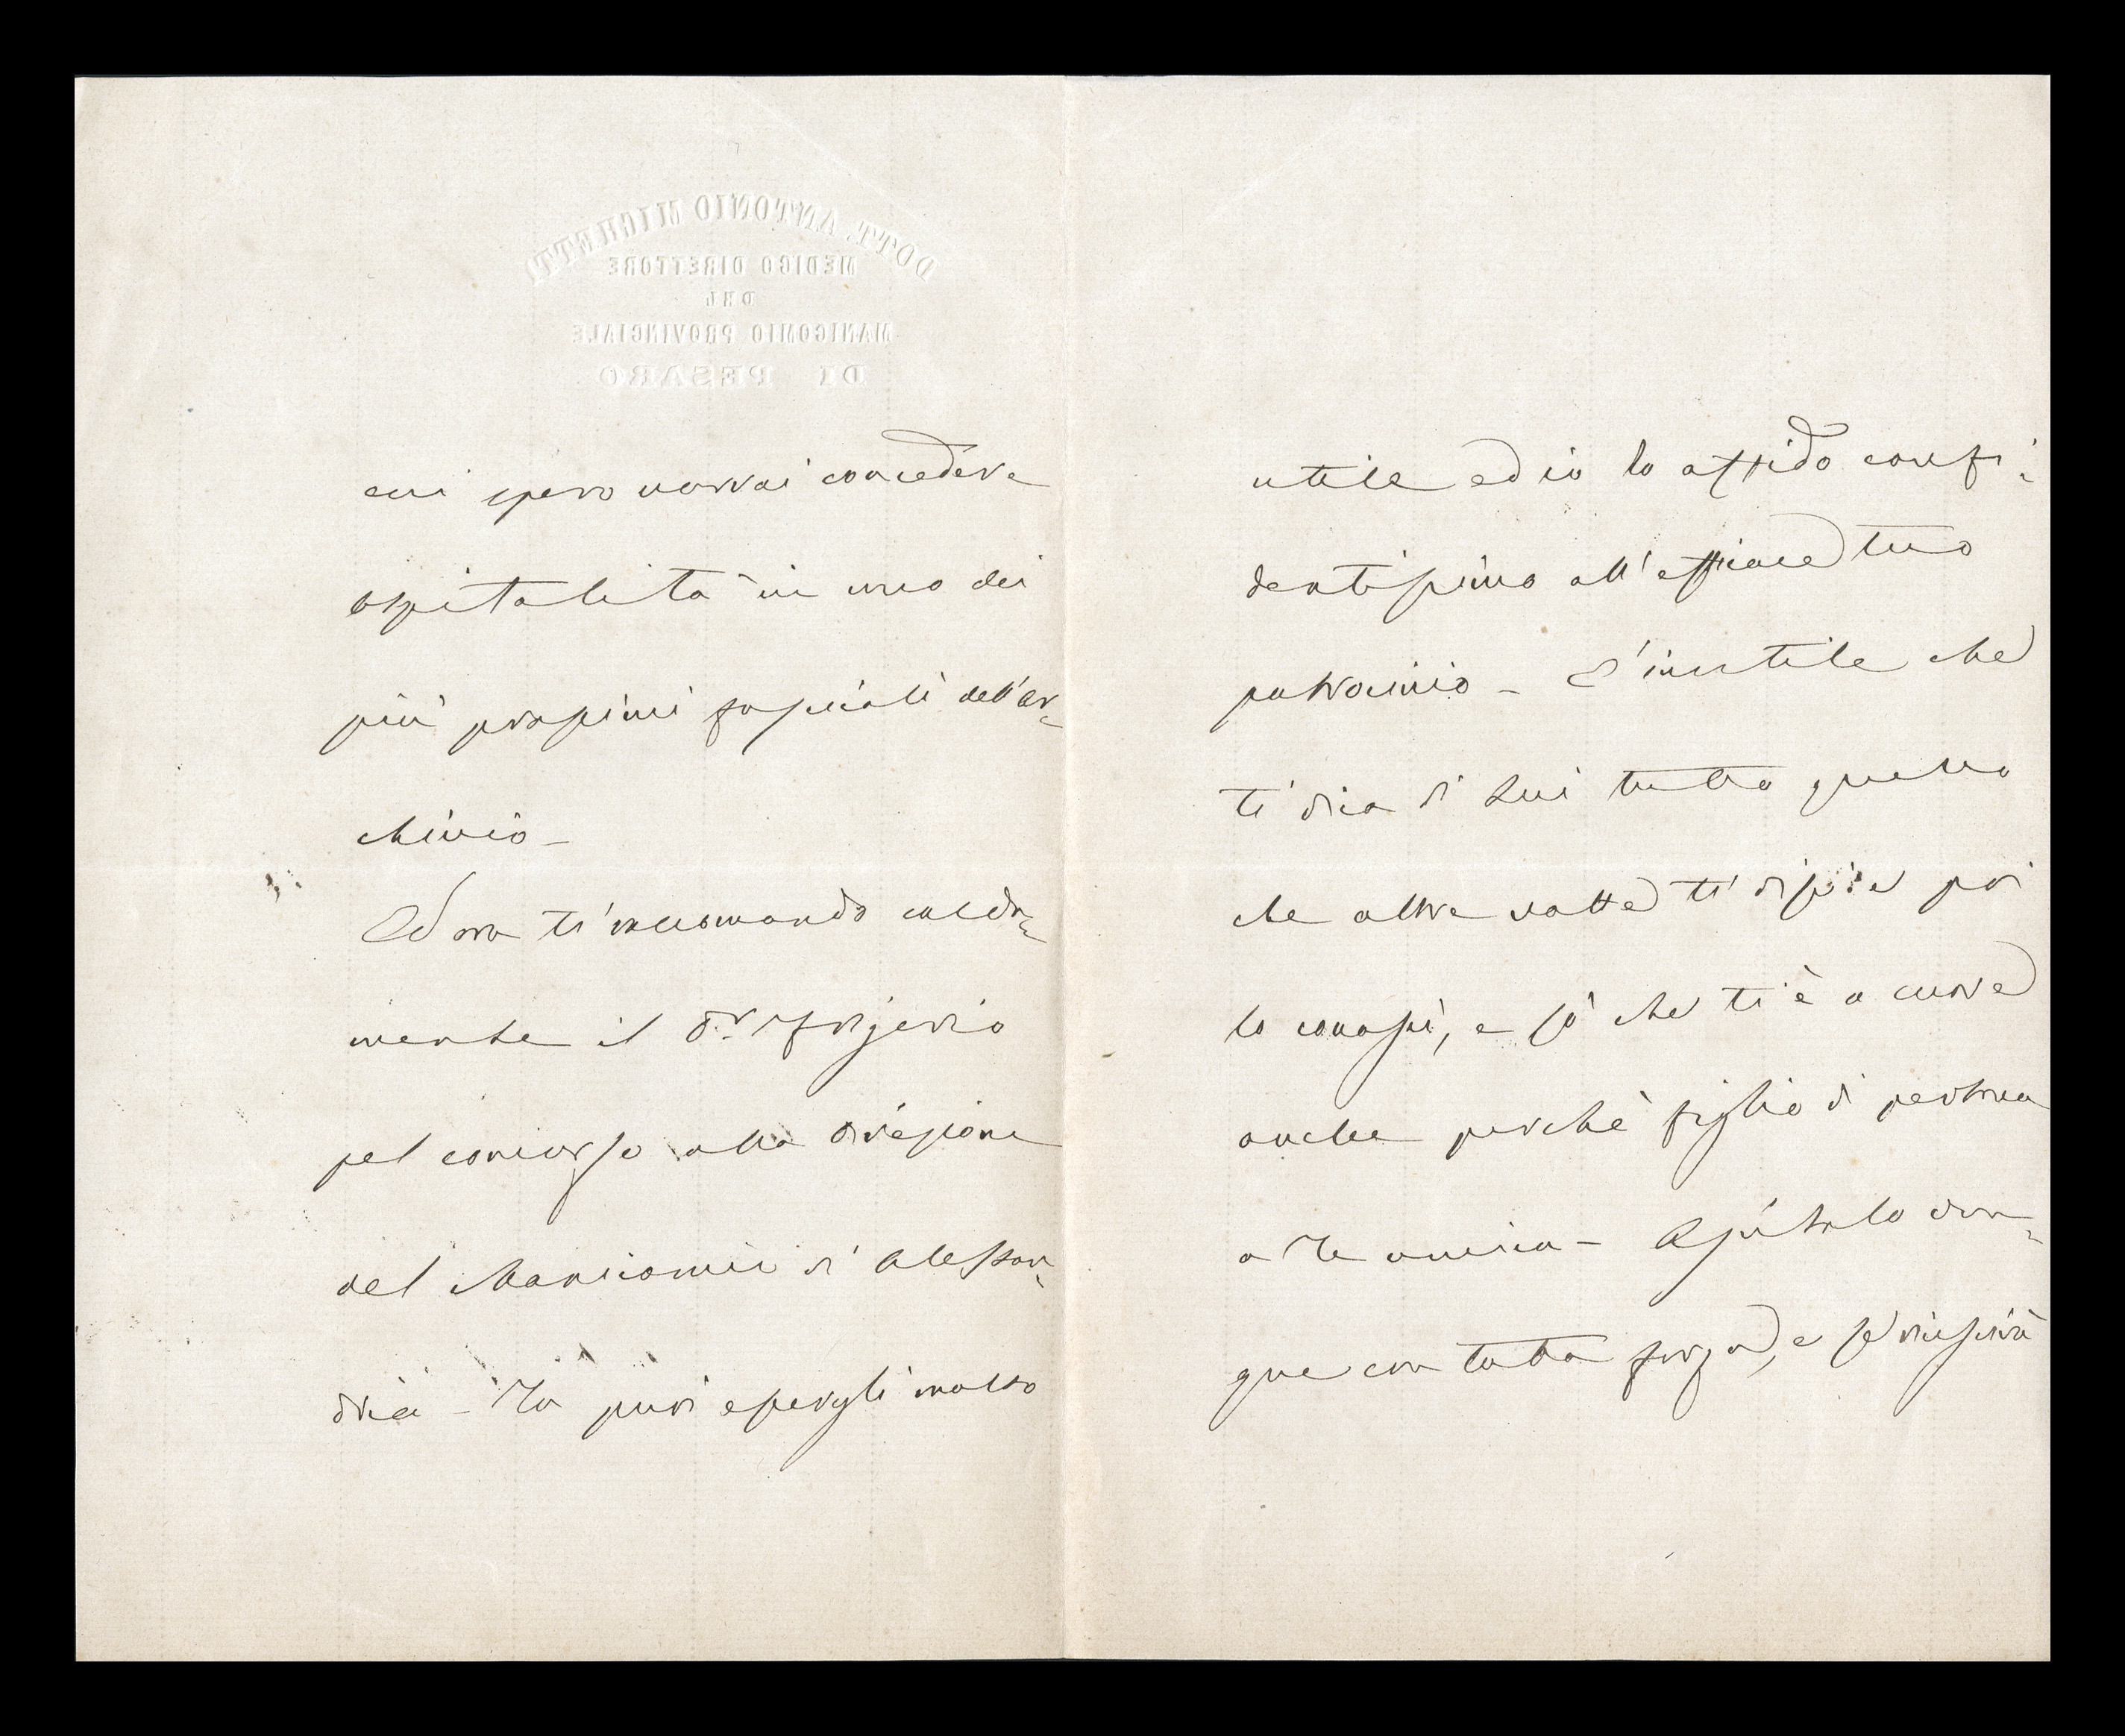 DOTT. ANTONIO MICHETTI
MEDICO DIRETTORE
DEL
MANICOMIO PROVINCIALE
DI PESARO
cui spero vorrai concedere
ospitalità in uno dei
più prossimi fascicoli dell'ar-
chivio -
Ed ora ti raccomando calda-
mente il Dr. Frigerio
pel concorso alla direzione
del Manicomio di Alessan-
dria - Tu puoi essergli molto
utile ed io lo affido confi-
dentissimo all'efficace tuo
patrocinio - E' inutile che
ti dica di lui tutto quello
che altre volte ti dissi e poi
lo conosci, e so che ti è a cuore
anche perchè figlio di persona
a Te amica - Assistilo dun-
que con tutta forza, e se riuscirà